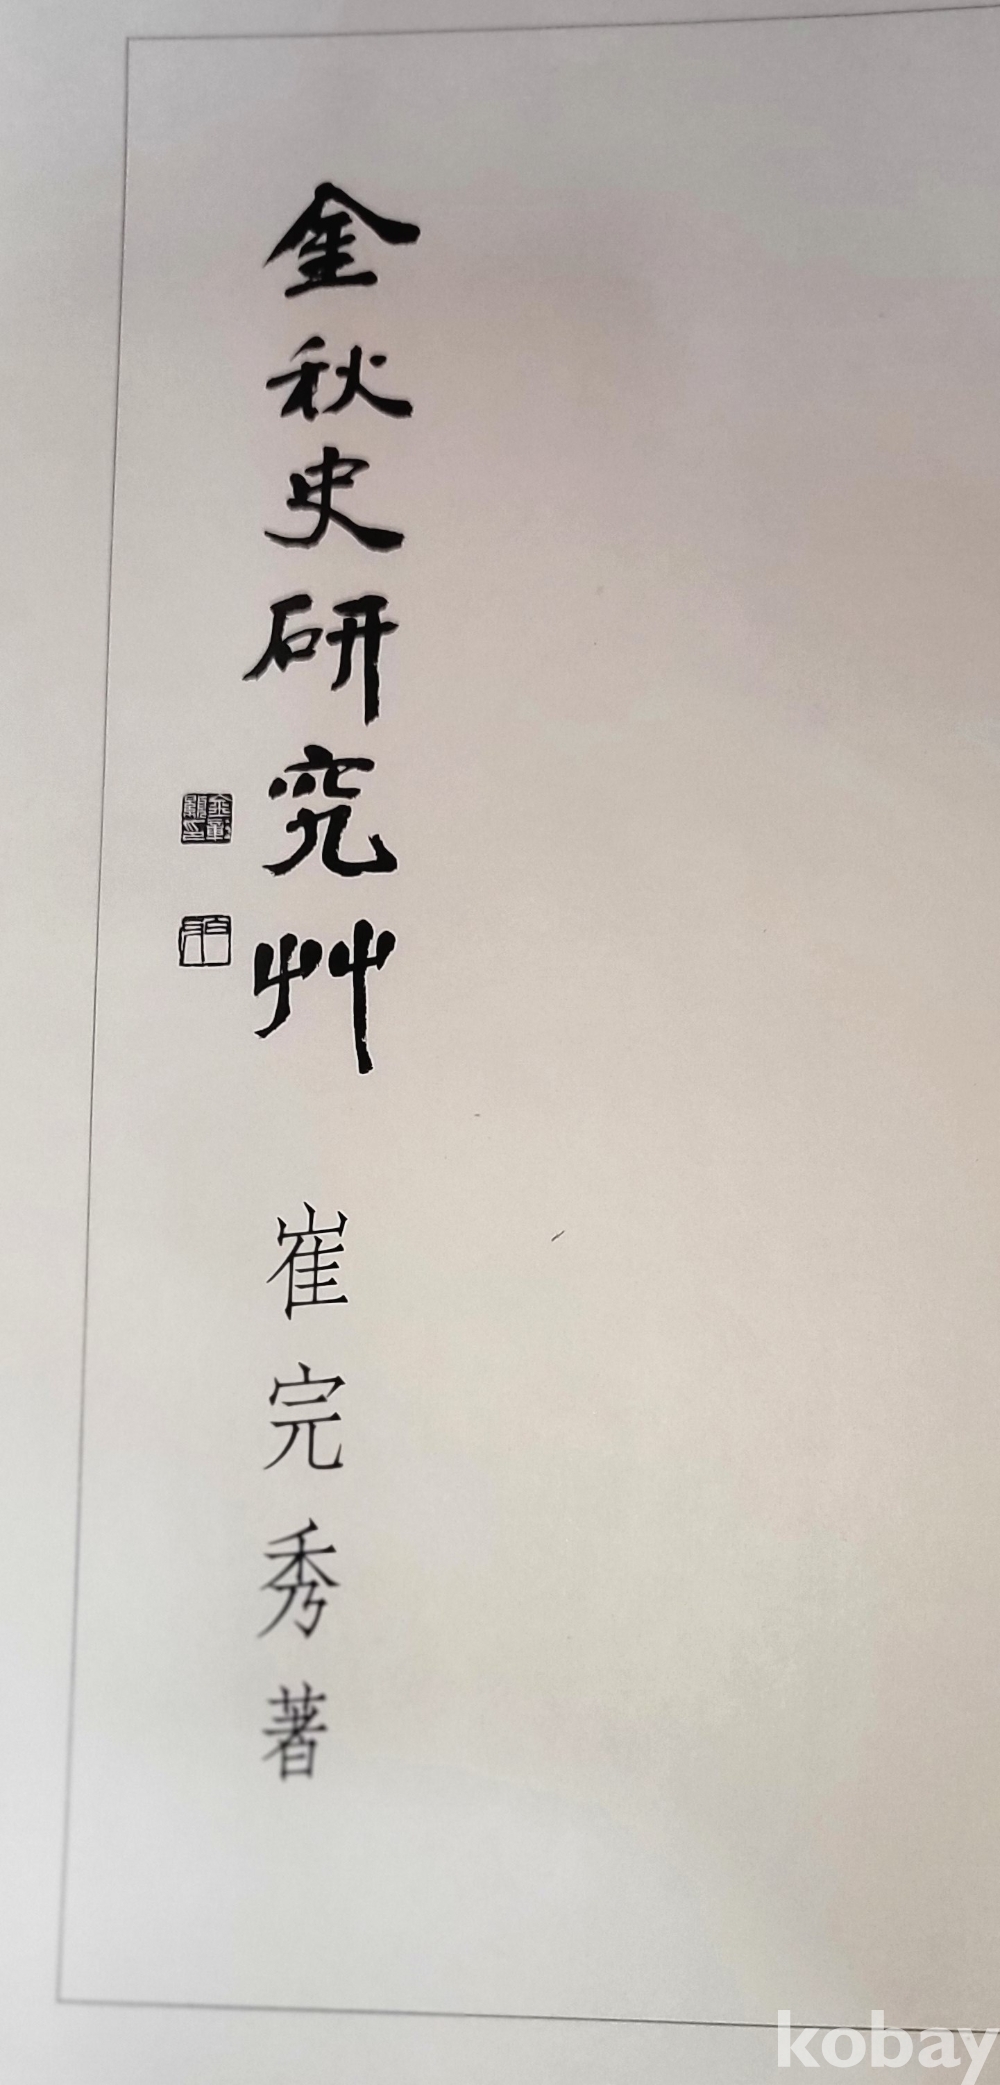 金秋史硏究艸
崔完秀著
kobay